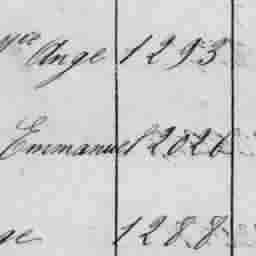 Ange 1293
Emmanuel 12026
ge 1288